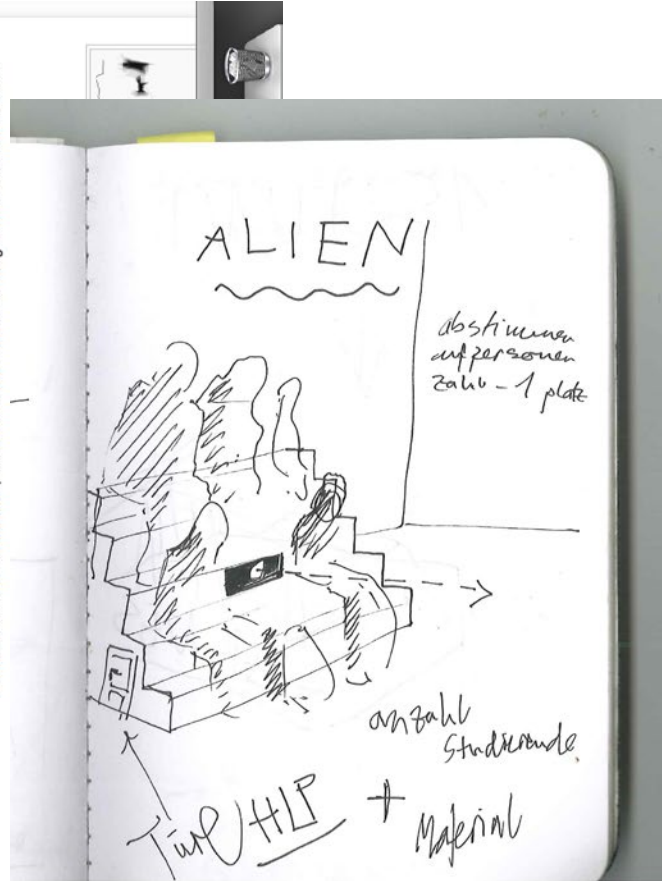 ALIEN
abstimmen
auf personen
zahl - 1 platz
anzahl
Studierende
Türe HLP + Material